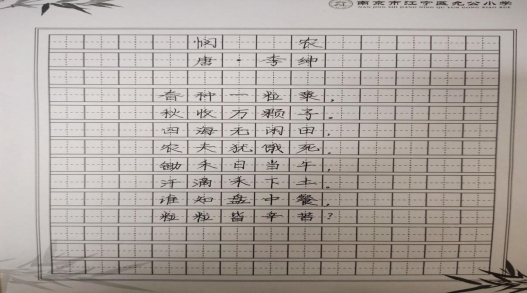 南京市江宁区尧公小学
悯 农
唐·李绅
春种一粒粟,
秋收万颗子.
四海无闲田,
农夫犹饿死.
锄禾日当午,
汗滴禾下土.
谁知盘中餐,
粒粒皆辛苦?